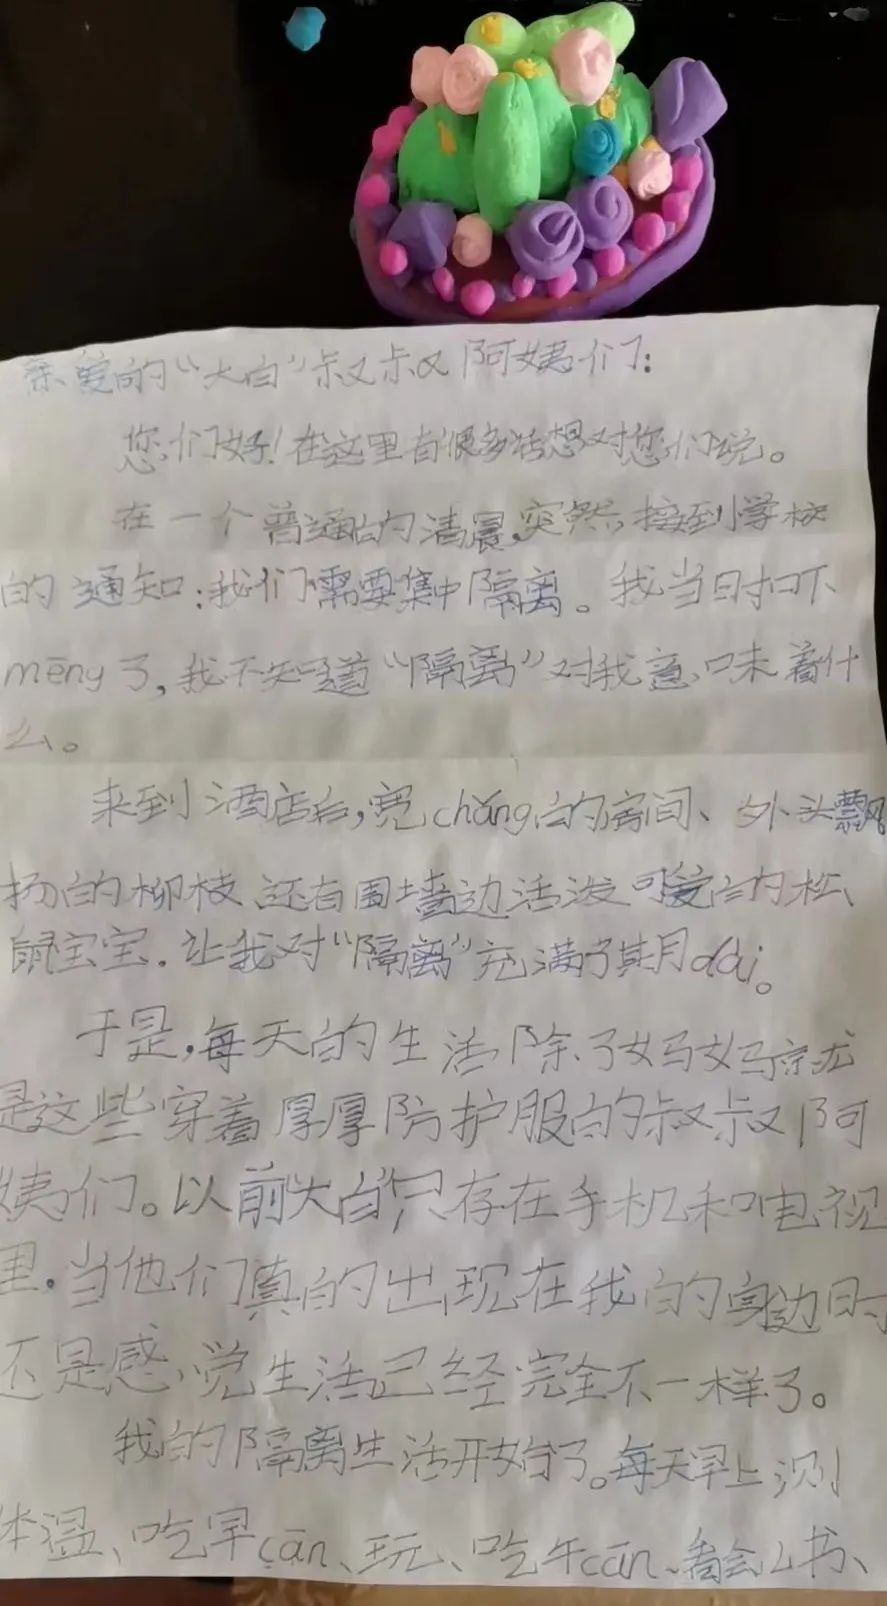 亲爱的“大白”叔叔阿姨们：
您们好！在这里有很多话想对您们说。
在一个普通的清晨，突然，接到学校
的通知：我们需要集中隔离。我当时不
mēng了，我不知道“隔离”对我意味着什
么。
来到酒店后，宽chǎng的房间、外头飘
扬的柳枝 还有围墙边活泼可爱的松
鼠宝宝．让我对“隔离”充满了期dài。
于是，每天的生活除了妈妈就
是这些穿着厚厚防护服的叔叔阿
姨们。以前“大白”只存在手机和电视
里．当他们真的出现在我的身边时
还是感觉生活已经完全不一样了。
我的隔离生活开始了。每天早上测
体温、吃早cān、玩、吃午cān、看会儿书、